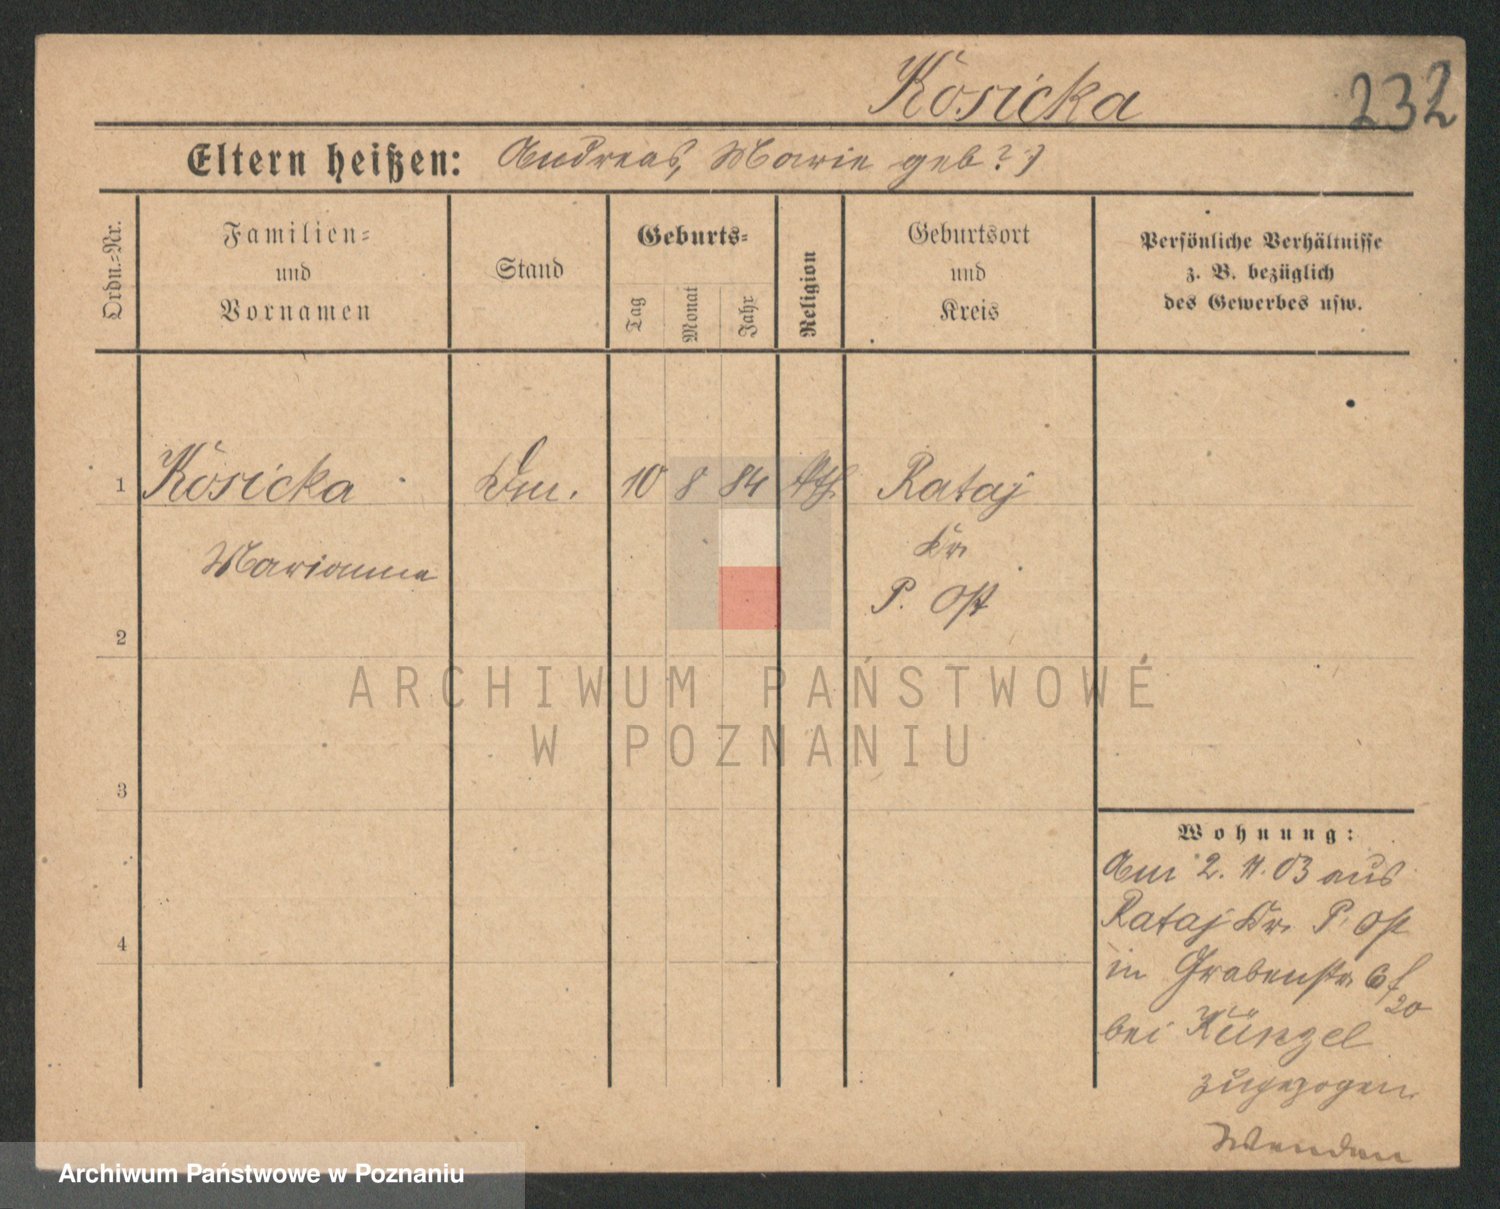 Kosicka
232
Eltern heißen: Andreas, Marie geb ?
Ordn.=Nr.
Familien=
und
Vornamen
Stand
Geburts=
Tag
Monat
Jahr
Religion
Geburtsort
und
Kreis
Persönliche Verhältnisse
z. B. bezüglich
des Gewerbes usw.
1 Kosicka 10 8 84 kth Rataj
Marianna
Kr
P. Ost
2
3
4
Wohnung:
Am 2. 11. 03 aus
Rataj Kr. P. Ost
in Grabenstr 6
20
bei Künzel
zugezogen
Wenden
ARCHIWUM PAŃSTWOWE
W POZNANIU
Archiwum Państwowe w Poznaniu